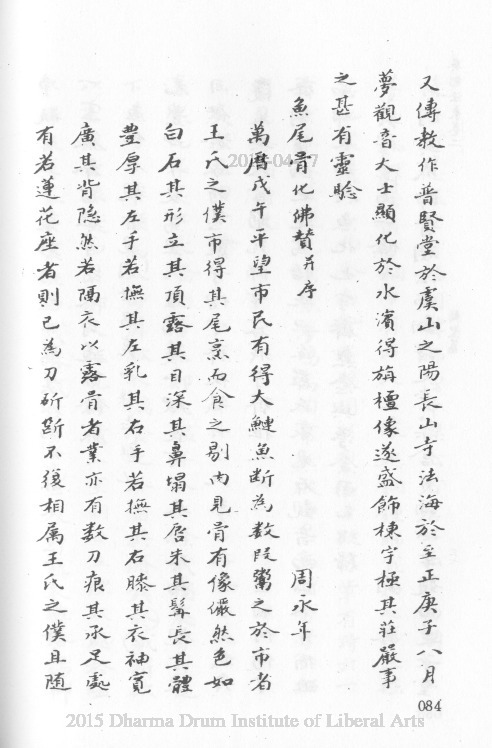 又傳教作普賢堂於虞山之陽長山寺法海於至正庚子八月
夢觀音大士顯化於水濱得旃檀像遂盛飾棟宇極其莊嚴事
之甚有靈驗
魚尾骨化佛贊并序
周永年
萬曆戊午平望市民有得大鰱魚斷為數段鬻之於市者
王氏之僕市得其尾烹而食之剔肉見骨有像儼然色如
白石其形立其頂露其目深其鼻塌其唇朱其髯長其體
豐厚其左手若撫其左乳其右手若撫其右膝其衣袖寬
廣其背隐然若隔衣以露骨者業亦有数刀痕其承足處
有若蓮花座者則已為刀斫斷不復相属王氏之僕且随
084
2015 Dharma Drum Institute of Liberal Arts